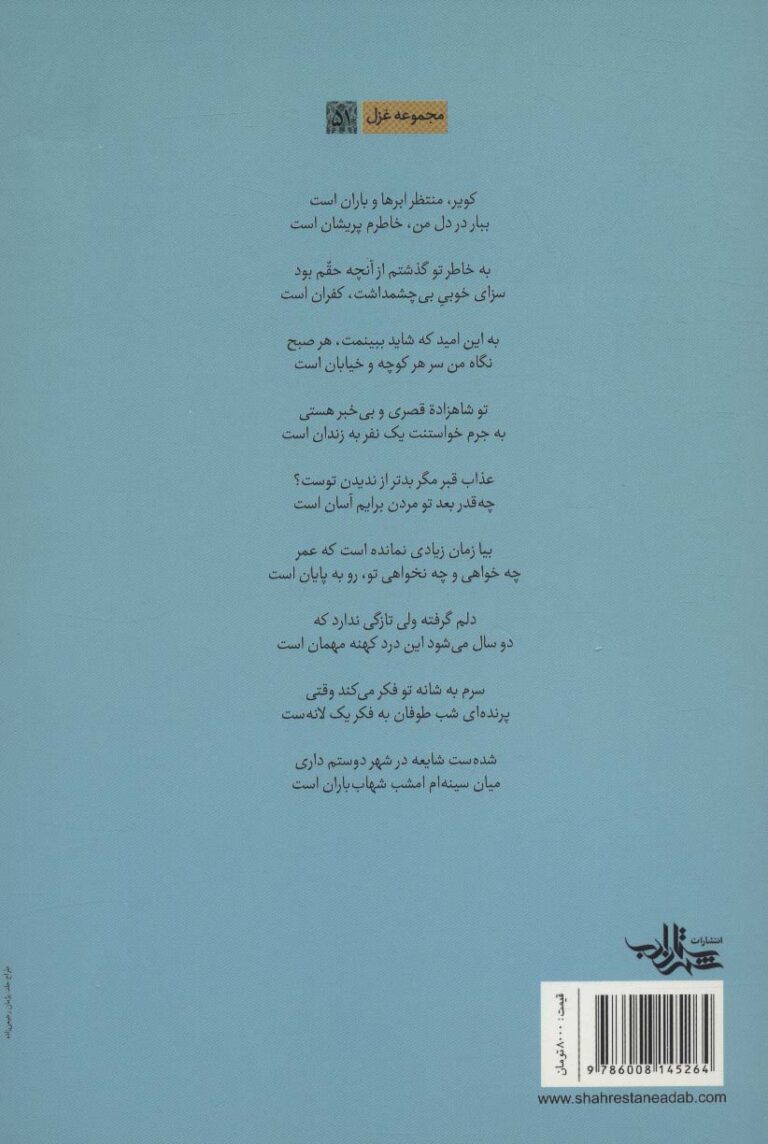 مجموعه غزل ۵۱
کویر، منتظر ابرها و باران است
ببار در دل من، خاطرم پریشان است
به خاطر تو گذشتم از آنچه حقّم بود
سزای خوبیِ بی‌چشمداشت، کفران است
به این امید که شاید ببینمت، هر صبح
نگاه من سر هر کوچه و خیابان است
تو شاهزادهٔ قصری و بی‌خبر هستی
به جرم خواستنت یک نفر به زندان است
عذاب قبر مگر بدتر از ندیدن توست؟
چه‌قدر بعد تو مردن برایم آسان است
بیا زمان زیادی نمانده است که عمر
چه خواهی و چه نخواهی تو، رو به پایان است
دلم گرفته ولی تازگی ندارد که
دو سال می‌شود این درد کهنه مهمان است
سرم به شانه تو فکر می‌کند وقتی
پرنده‌ای شب طوفان به فکر یک لانه‌ست
شده‌ست شایعه در شهر دوستم داری
میان سینه‌ام امشب شهاب‌باران است
انتشارات
شهرستان ادب
قیمت: ۸۰۰۰ تومان
9 786008 145264
www.shahrestaneadab.com
طراح جلد: پژمان رحیمی‌زاده